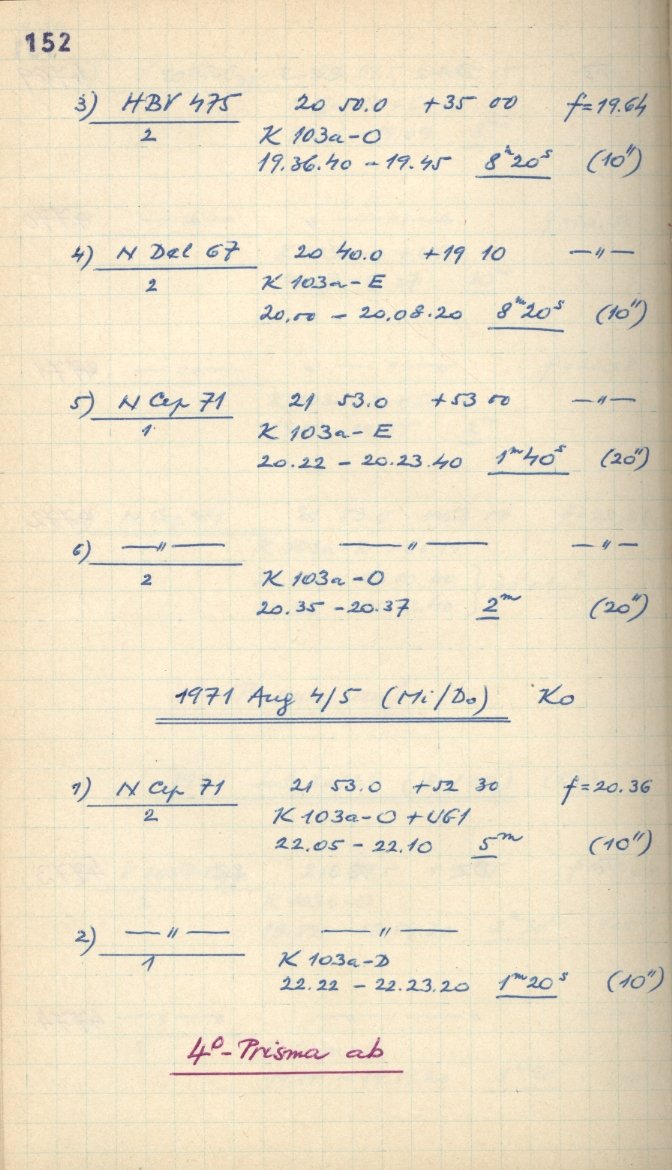 152
3) HBV 475 20 50.0 +35 00 f=19.64
2 K 103a-O
19.36.40 - 19.45 8ᵐ20ˢ (10")
4) N Del 67 20 40.0 +19 10 —"—
2 K 103a-E
20.00 - 20.08.20 8ᵐ20ˢ (10")
5) N Cep 71 21 53.0 +53 00 —"—
1 K 103a-E
20.22 - 20.23.40 1ᵐ40ˢ (20")
6) —"— —"— —"—
2 K 103a-O
20.35 - 20.37 2ᵐ (20")
1971 Aug 4/5 (Mi/Do) Ko
1) N Cep 71 21 53.0 +52 30 f=20.36
2 K 103a-O + UG1
22.05 - 22.10 5ᵐ (10")
2) —"— —"—
1 K 103a-D
22.22 - 22.23.20 1ᵐ20ˢ (10")
4⁰-Prisma ab